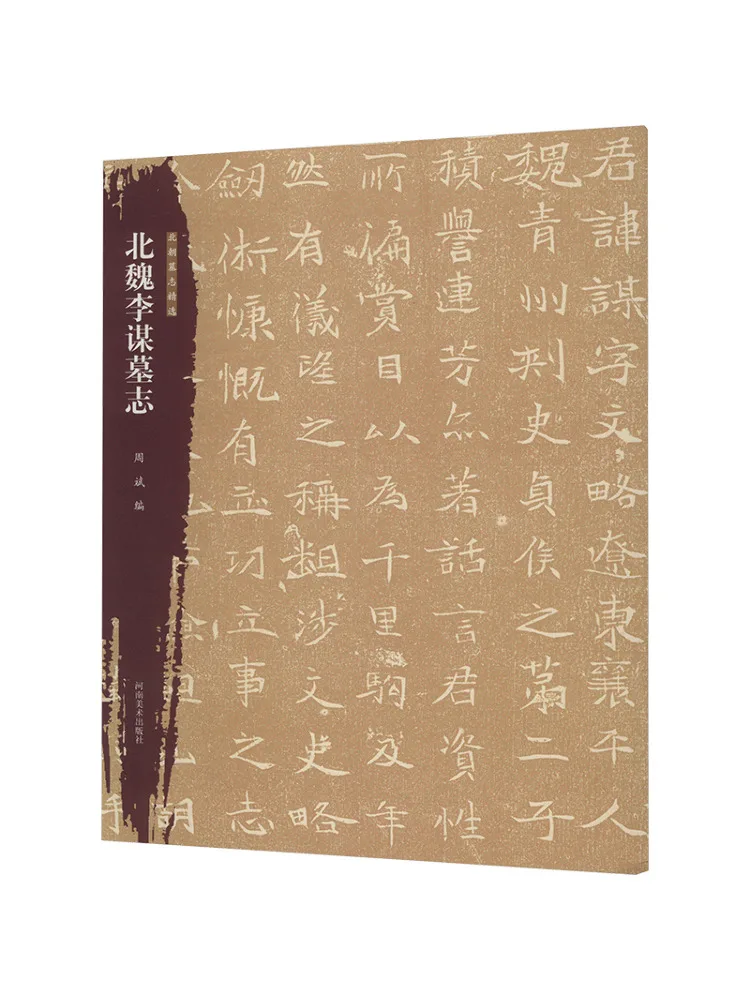 北朝墓志精选
北魏李谋墓志
周斌 编
河南美术出版社
君諱謀字文略遼東襄平人
魏青州刾史貞侯之苐二子
積譽連芳亦著話言君資性
所偏賞目以為千里駒及年
然有儀之稱粗涉文史略
劒術慷慨有立功立事之志